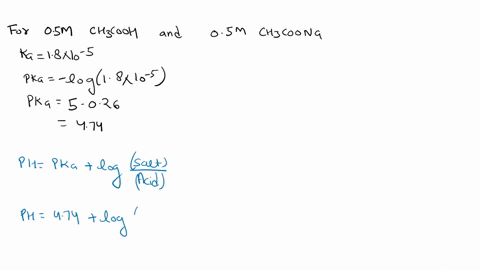 For 0.5M CH3COOH and 0.5M CH3COONa
Ka=1.8x10^-5
PKa=-log(1.8x10^-5)
PKa= 5-0.26
= 4.74
PH= PKa + log (Salt)/(Acid)
PH= 4.74 + log (